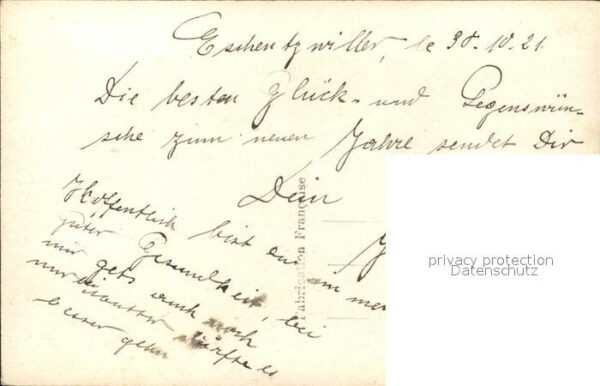 Eschentzwiller, le 30.10.21
Die besten Glück- und Segenswün-
sche zum neuen Jahre sendet Dir
Dein
Hoffentlich bist du in
guter Gesundheit, bei
mir gets auch noch
nur dürfte es
besser gehn
Fabrication Française
privacy protection
Datenschutz